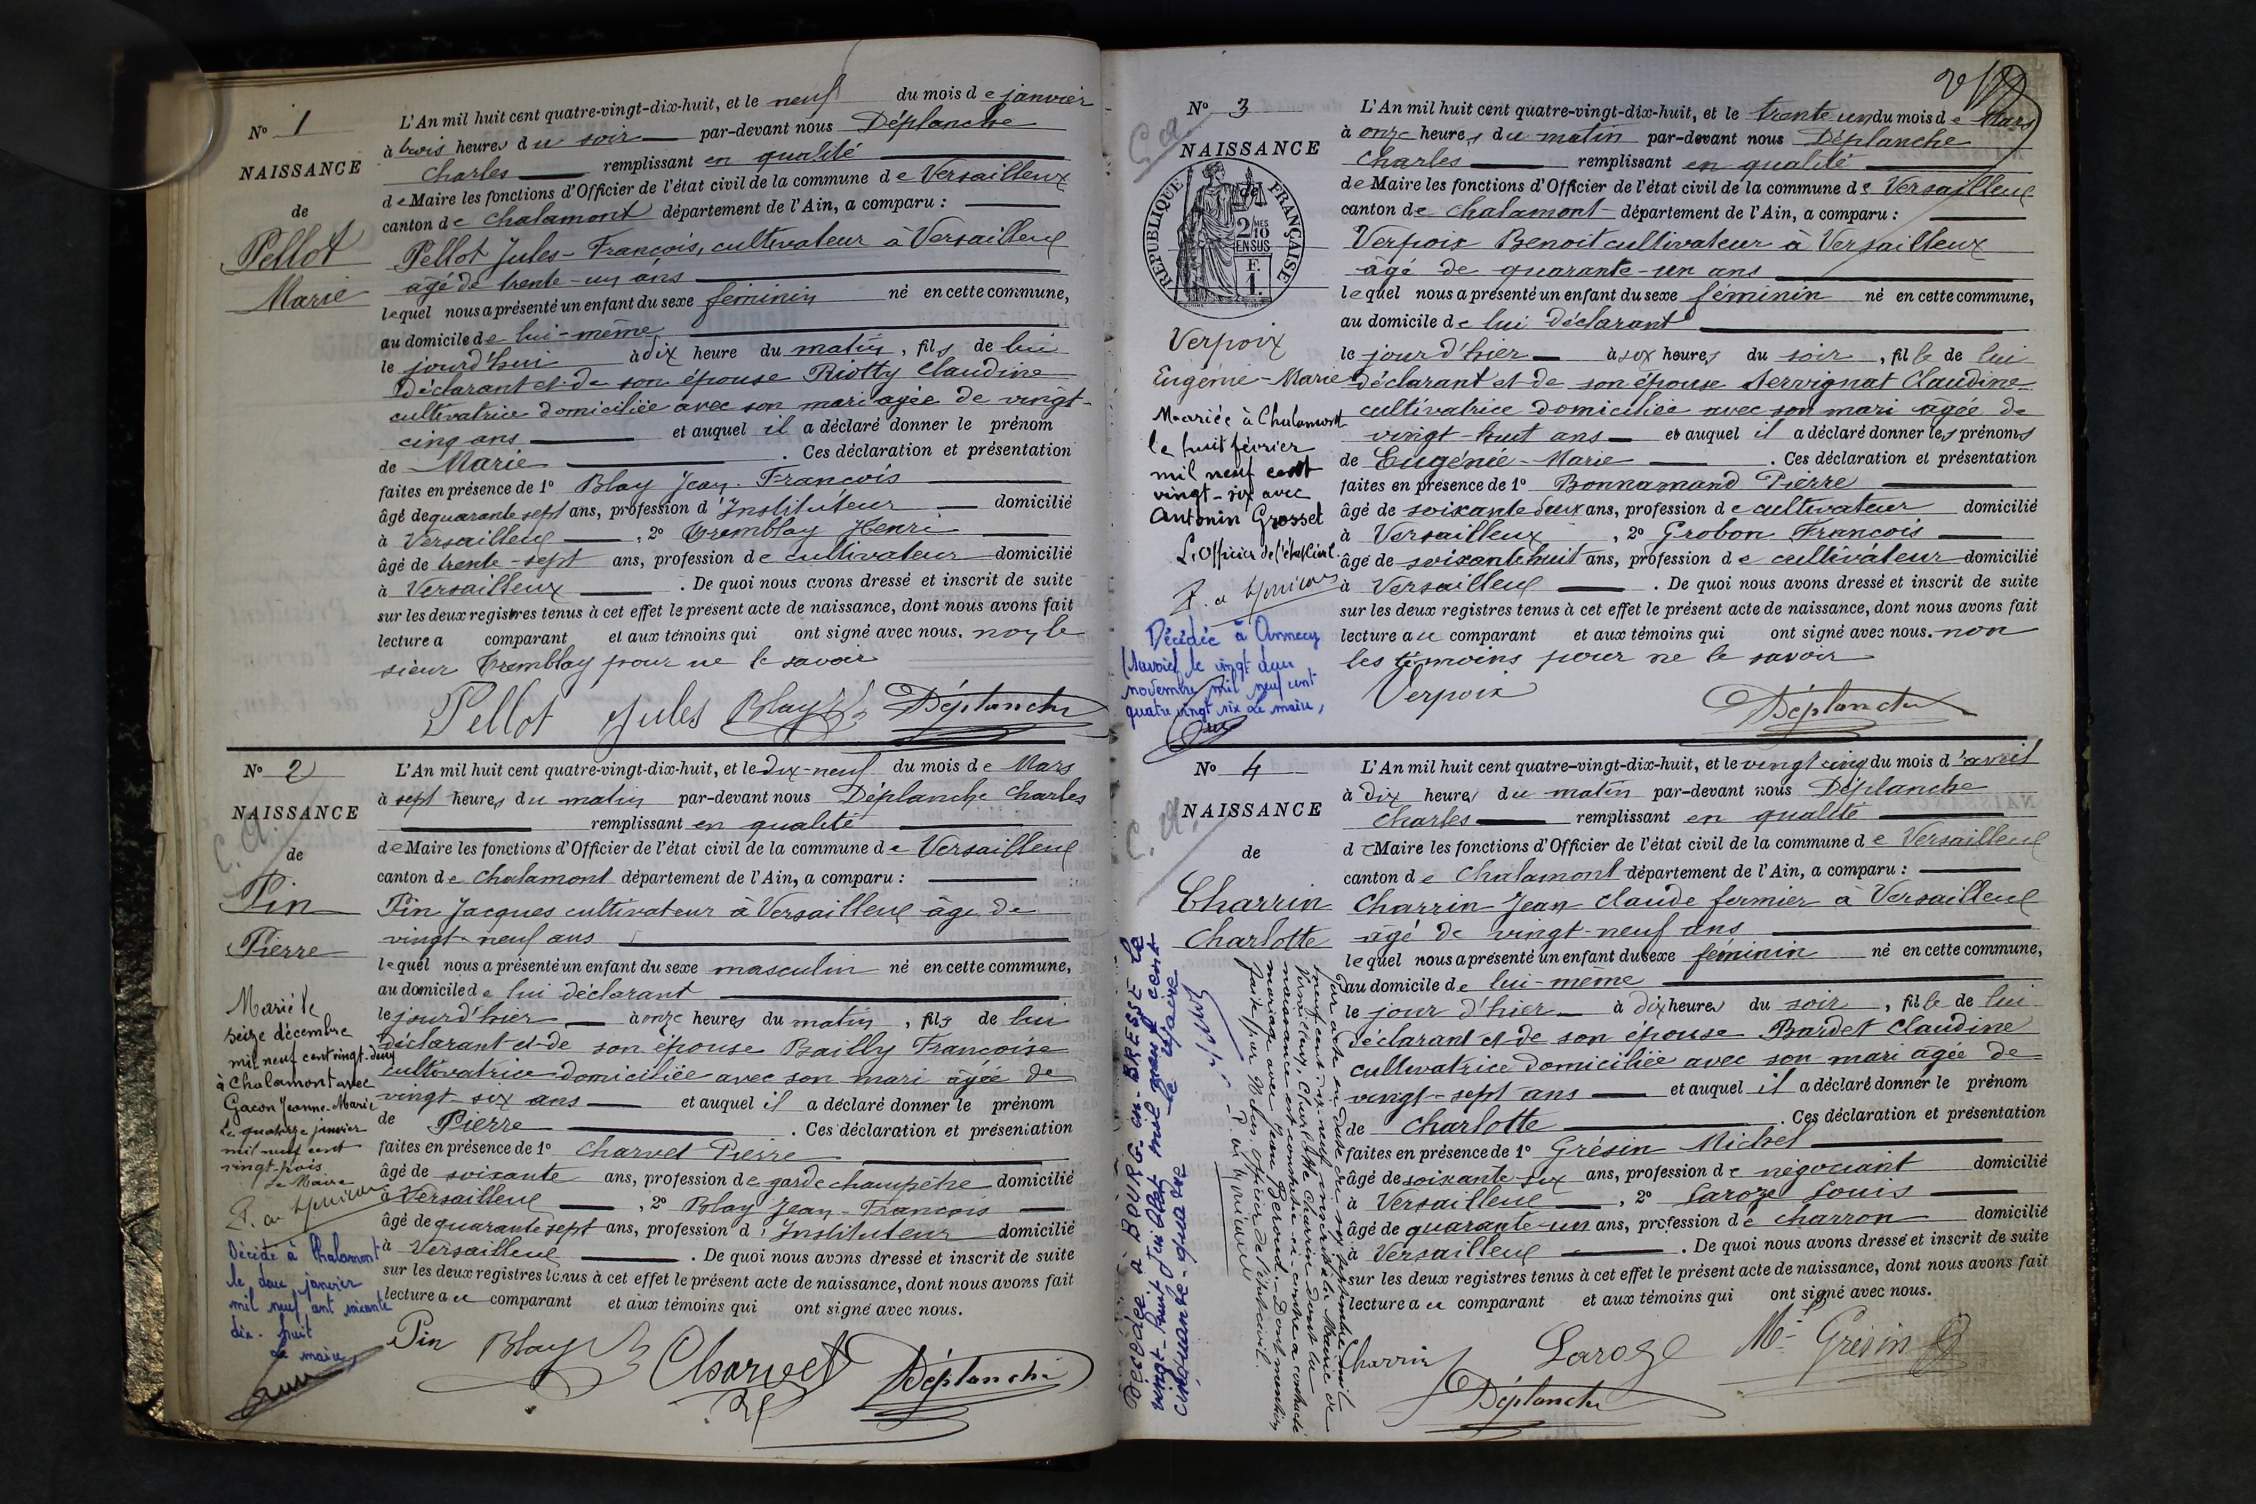 N° 1
NAISSANCE
de
Pellot
Marie
L'An mil huit cent quatre-vingt-dix-huit, et le neuf du mois de janvier
à trois heures du soir par-devant nous Déplanche
Charles remplissant en qualité
de Maire les fonctions d'Officier de l'état civil de la commune de Versailleux
canton de Chalamont département de l'Ain, a comparu :
Pellot Jules-François, cultivateur à Versailleux
âgé de trente-un ans
lequel nous a présenté un enfant du sexe féminin né en cette commune,
au domicile de lui-même
le jourd'hui à dix heure du matin, fils de lui
déclarant et de son épouse Riotty Claudine
cultivatrice domiciliée avec son mari agée de vingt-
cinq ans et auquel il a déclaré donner le prénom
de Marie . Ces déclaration et présentation
faites en présence de 1° Blay Jean-François
âgé de quarante sept ans, profession d'Instituteur domicilié
à Versailleux , 2° Tremblay Henri
âgé de trente-sept ans, profession de cultivateur domicilié
à Versailleux . De quoi nous avons dressé et inscrit de suite
sur les deux registres tenus à cet effet le présent acte de naissance, dont nous avons fait
lecture a comparant et aux témoins qui ont signé avec nous. non le
sieur Tremblay pour ne le savoir
Pellot Jules Blay Déplanche
N° 2
NAISSANCE
C. A.
de
Pin
Pierre
Marié le
seize décembre
mil neuf cent vingt-deux
à Chalamont avec
Gacon Jeanne-Marie
Le quatorze janvier
mil neuf cent
vingt-trois
Le Maire
Décédé à Chalamont
le douze janvier
mil neuf cent soixante
dix-huit
Le maire,
L'An mil huit cent quatre-vingt-dix-huit, et le dix-neuf du mois de Mars
à sept heures du matin par-devant nous Déplanche Charles
remplissant en qualité
de Maire les fonctions d'Officier de l'état civil de la commune de Versailleux
canton de Chalamont département de l'Ain, a comparu :
Pin Jacques cultivateur à Versailleux âgé de
vingt-neuf ans
lequel nous a présenté un enfant du sexe masculin né en cette commune,
au domicile de lui déclarant
le jourd'hier à onze heures du matin, fils de lui
déclarant et de son épouse Bailly Françoise
cultivatrice domiciliée avec son mari âgée de
vingt-six ans et auquel il a déclaré donner le prénom
de Pierre . Ces déclaration et présentation
faites en présence de 1° Charvet Pierre
âgé de soixante ans, profession de garde champêtre domicilié
à Versailleux , 2° Blay Jean-François
âgé de quarante sept ans, profession d'Instituteur domicilié
à Versailleux . De quoi nous avons dressé et inscrit de suite
sur les deux registres tenus à cet effet le présent acte de naissance, dont nous avons fait
lecture au comparant et aux témoins qui ont signé avec nous.
Pin Blay Charvet Déplanche
N° 3
NAISSANCE
C. A.
de
RÉPUBLIQUE FRANÇAISE
2/10 MES
EN SUS
F.
1.
Verpoix
Eugénie-Marie
Mariée à Chalamont
le huit février
mil neuf cent
vingt-six avec
Antonin Grosset
L'Officier de l'état civil.
Décédée à Annecy
(Savoie) le vingt deux
novembre mil neuf cent
quatre vingt six Le maire,
L'An mil huit cent quatre-vingt-dix-huit, et le trente un du mois de Mars
à onze heures du matin par-devant nous Déplanche
Charles remplissant en qualité
de Maire les fonctions d'Officier de l'état civil de la commune de Versailleux
canton de Chalamont département de l'Ain, a comparu :
Verpoix Benoit cultivateur à Versailleux
âgé de quarante-un ans
lequel nous a présenté un enfant du sexe féminin né en cette commune,
au domicile de lui déclarant
le jourd'hier à six heures du soir, fille de lui
déclarant et de son épouse Servignat Claudine
cultivatrice domiciliée avec son mari âgée de
vingt-huit ans et auquel il a déclaré donner les prénoms
de Eugénie-Marie . Ces déclaration et présentation
faites en présence de 1° Bonnamand Pierre
âgé de soixante deux ans, profession de cultivateur domicilié
à Versailleux , 2° Grobon François
âgé de soixante huit ans, profession de cultivateur domicilié
à Versailleux . De quoi nous avons dressé et inscrit de suite
sur les deux registres tenus à cet effet le présent acte de naissance, dont nous avons fait
lecture au comparant et aux témoins qui ont signé avec nous. non
les témoins pour ne le savoir
Verpoix Déplanche
N° 4
NAISSANCE
C. A.
de
Charrin
Charlotte
Par acte en date du six septembre mil
neuf cent dix-neuf inscrit à la Mairie de
Versailleux, Charlotte Charrin dont la
naissance est constatée ci-contre a contracté
mariage avec Jean Beroud. Dont mention
faite par Nous, officier de l'état civil.
Décédée à BOURG-en-BRESSE le
vingt-huit Juillet mil neuf cent
cinquante-quatre le Maire
L'An mil huit cent quatre-vingt-dix-huit, et le vingt cinq du mois d'avril
à dix heures du matin par-devant nous Déplanche
Charles remplissant en qualité
de Maire les fonctions d'Officier de l'état civil de la commune de Versailleux
canton de Chalamont département de l'Ain, a comparu :
Charrin Jean Claude fermier à Versailleux
agé de vingt-neuf ans
lequel nous a présenté un enfant du sexe féminin né en cette commune,
au domicile de lui-même
le jour d'hier à dix heures du soir, fille de lui
déclarant et de son épouse Bardet Claudine
cultivatrice domiciliée avec son mari agée de
vingt-sept ans et auquel il a déclaré donner le prénom
de Charlotte . Ces déclaration et présentation
faites en présence de 1° Grésin Michel
âgé de soixante six ans, profession de négociant domicilié
à Versailleux , 2° Laroze Louis
âgé de quarante-un ans, profession de charron domicilié
à Versailleux . De quoi nous avons dressé et inscrit de suite
sur les deux registres tenus à cet effet le présent acte de naissance, dont nous avons fait
lecture au comparant et aux témoins qui ont signé avec nous.
Charrin Laroze Mel Grésin
Déplanche